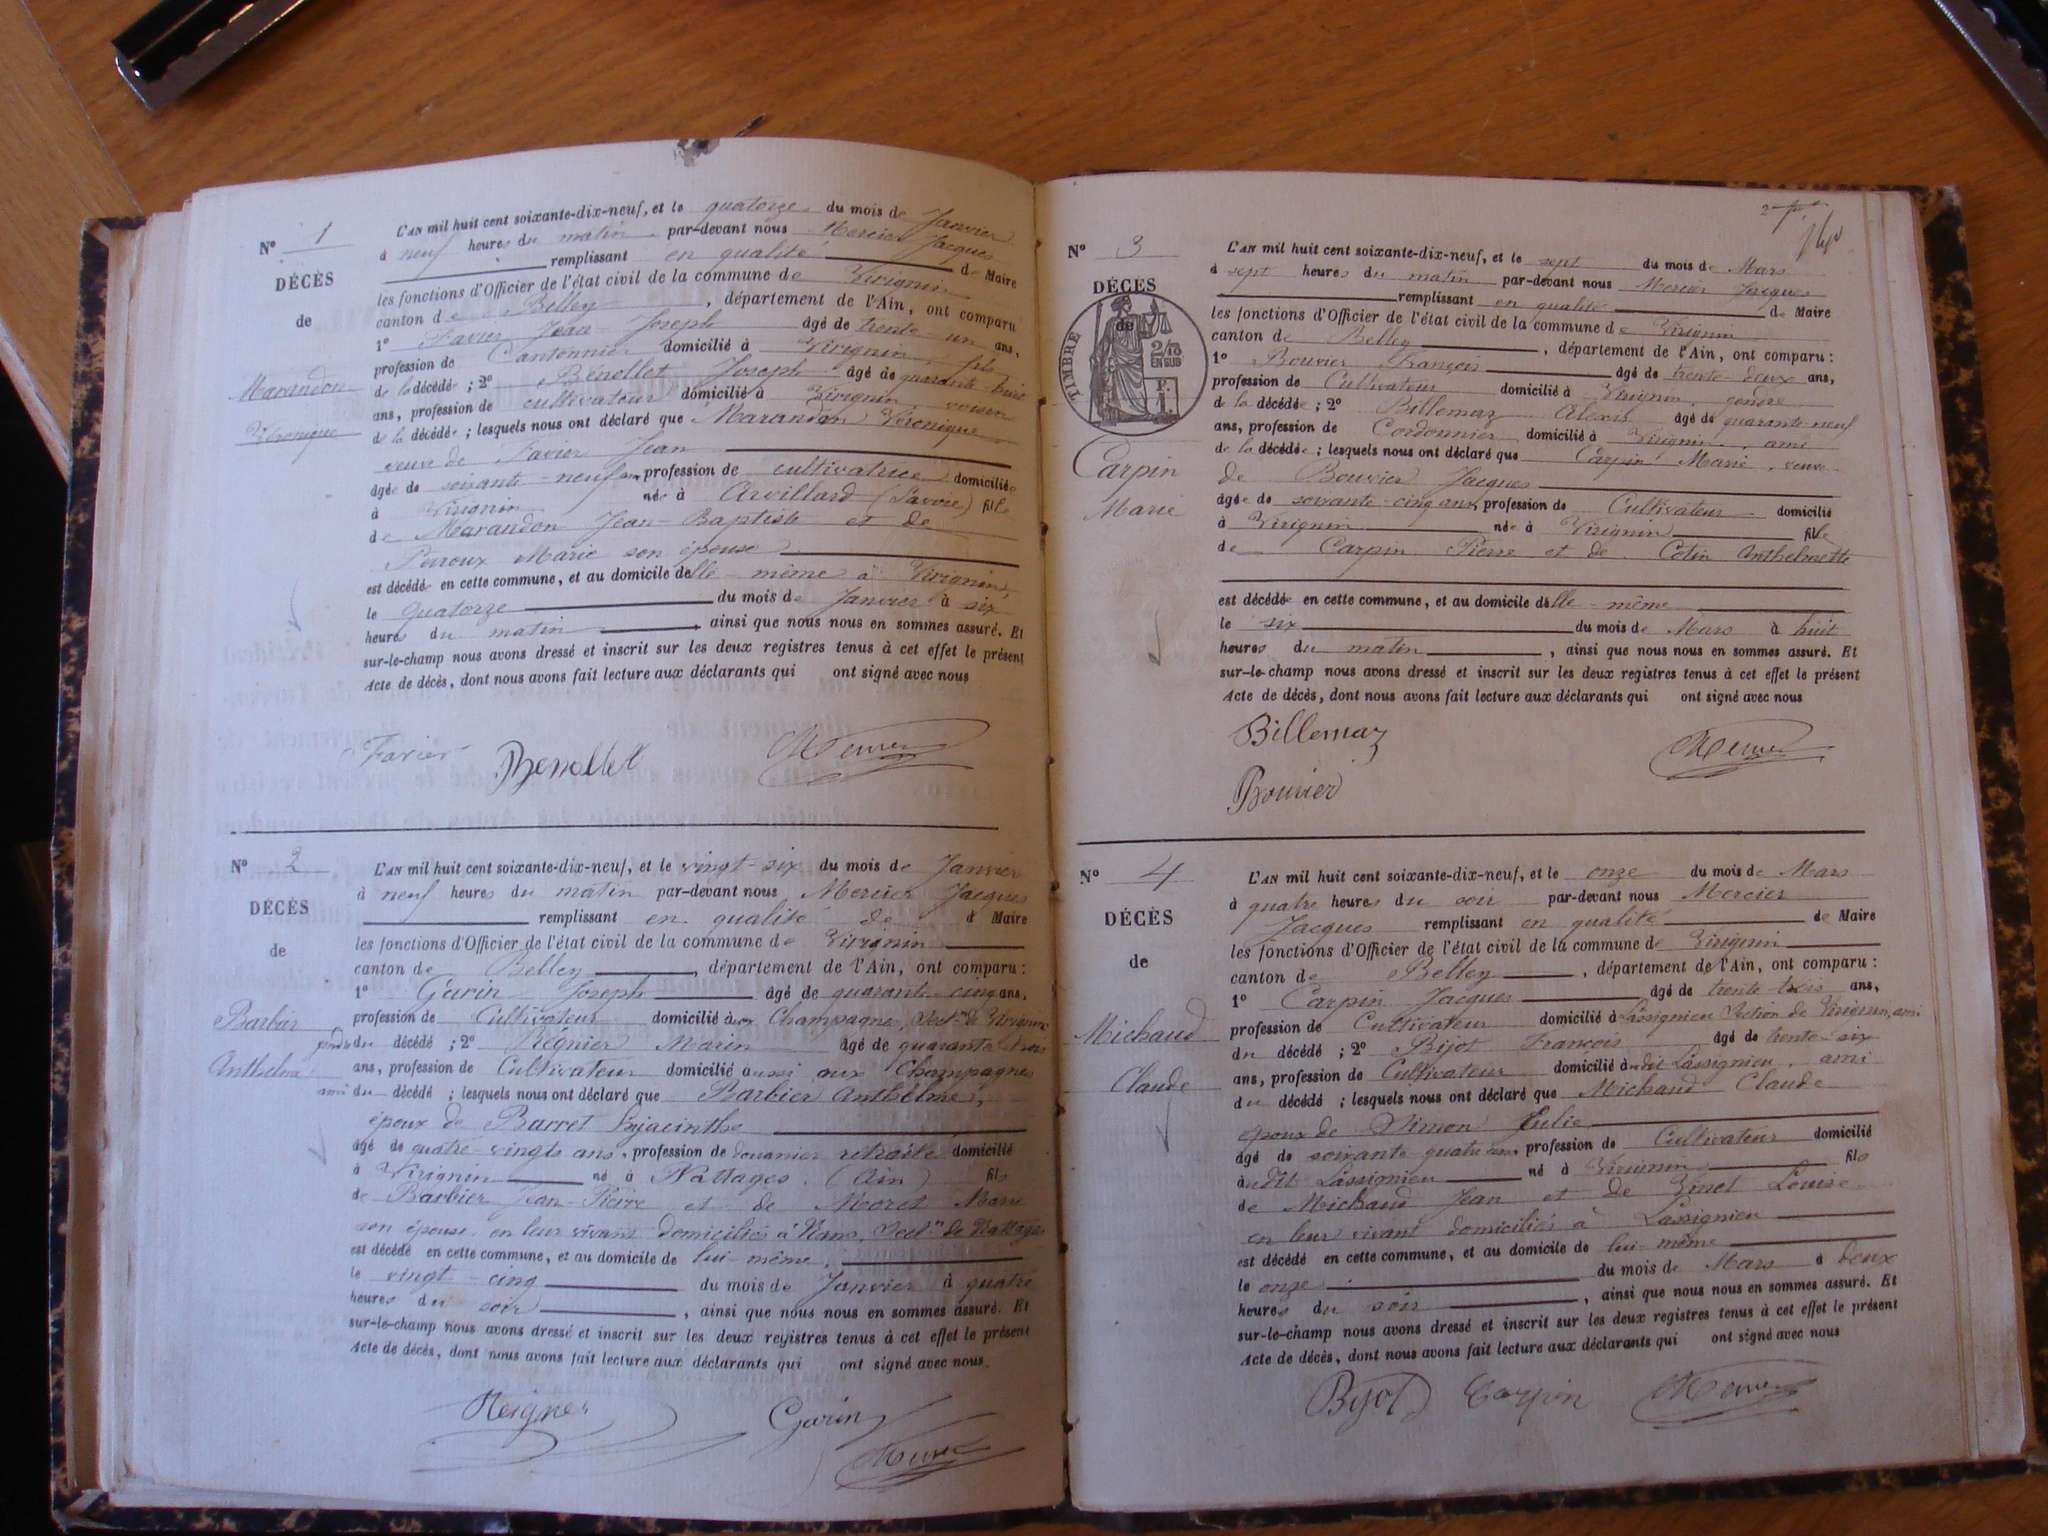 N° 1
DÉCÈS
de
Marandon
Véronique
L'AN mil huit cent soixante-dix-neuf, et le quatorze du mois de Janvier
à neuf heures du matin par-devant nous Mercier Jacques
remplissant en qualité de Maire
les fonctions d'Officier de l'état civil de la commune de Virignin
canton de Belley, département de l'Ain, ont comparu
1° Favier Jean Joseph âgé de trente-un ans,
profession de Cantonnier domicilié à Virignin, fils
de la décédée ; 2° Benellet Joseph âgé de quarante-huit
ans, profession de cultivateur domicilié à Virignin voisin
de la décédée ; lesquels nous ont déclaré que Marandon Véronique
veuve de Favier Jean
âgée de soixante-neuf ans profession de cultivatrice domiciliée
à Virignin née à Arvillard (Savoie) fille
de Marandon Jean-Baptiste et de
Perroux Marie son épouse
est décédée en cette commune, et au domicile d'elle-même à Virignin,
le quatorze du mois de Janvier à six
heures du matin, ainsi que nous nous en sommes assuré. Et
sur-le-champ nous avons dressé et inscrit sur les deux registres tenus à cet effet le présent
Acte de décès, dont nous avons fait lecture aux déclarants qui ont signé avec nous
Favier Benellet Mercier
N° 2
DÉCÈS
de
Barbier
Anthelme
L'AN mil huit cent soixante-dix-neuf, et le vingt-six du mois de Janvier
à neuf heures du matin par-devant nous Mercier Jacques
remplissant en qualité de à Maire
les fonctions d'Officier de l'état civil de la commune de Virignin
canton de Belley, département de l'Ain, ont comparu :
1° Garin Joseph âgé de quarante-cinq ans,
profession de Cultivateur domicilié aux Champagne, Sect.on de Virignin
du décédé ; 2° Régnier Marin âgé de quarante-trois
ans, profession de Cultivateur domicilié aussi aux Champagnes
ami du décédé ; lesquels nous ont déclaré que Barbier Anthelme,
époux de Barret Hyacinthe
âgé de quatre-vingts ans, profession de douanier retraité domicilié
à Virignin né à Nattages (Ain) fils
de Barbier Jean-Pierre et de Moret Marie
son épouse en leur vivant domiciliés à Nans, Sect.on de Nattages
est décédé en cette commune, et au domicile de lui-même,
le vingt-cinq du mois de Janvier à quatre
heures du soir, ainsi que nous nous en sommes assuré. Et
sur-le-champ nous avons dressé et inscrit sur les deux registres tenus à cet effet le présent
Acte de décès, dont nous avons fait lecture aux déclarants qui ont signé avec nous.
Reignier Garin
Mercier
N° 3
DÉCÈS
de
TIMBRE
2/10
EN SUS
Carpin
Marie
L'AN mil huit cent soixante-dix-neuf, et le sept du mois de Mars
à sept heures du matin par-devant nous Mercier Jacques
remplissant en qualité de Maire
les fonctions d'Officier de l'état civil de la commune de Virignin
canton de Belley, département de l'Ain, ont comparu :
1° Bouvier François âgé de trente-deux ans,
profession de Cultivateur domicilié à Virignin, gendre
de la décédée ; 2° Billemaz Alexis âgé de quarante-neuf
ans, profession de Cordonnier domicilié à Virignin, ami
de la décédée ; lesquels nous ont déclaré que Carpin Marie, veuve
de Bouvier Jacques
âgée de soixante-cinq ans, profession de Cultivateur domicilié
à Virignin née à Virignin fille
de Carpin Pierre et de Cotin Anthelmette
est décédée en cette commune, et au domicile d'elle-même
le six du mois de Mars à huit
heures du matin, ainsi que nous nous en sommes assuré. Et
sur-le-champ nous avons dressé et inscrit sur les deux registres tenus à cet effet le présent
Acte de décès, dont nous avons fait lecture aux déclarants qui ont signé avec nous
Billemaz Mercier
Bouvier
N° 4
DÉCÈS
de
Michaud
Claude
L'AN mil huit cent soixante-dix-neuf, et le onze du mois de Mars
à quatre heures du soir par-devant nous Mercier
Jacques remplissant en qualité de Maire
les fonctions d'Officier de l'état civil de la commune de Virignin
canton de Belley, département de l'Ain, ont comparu :
1° Carpin Jacques âgé de trente-trois ans,
profession de Cultivateur domicilié à Lassignieu Section de Virignin, ami
du décédé ; 2° Bijot François âgé de trente-six
ans, profession de Cultivateur domicilié audit Lassignieu, ami
du décédé ; lesquels nous ont déclaré que Michaud Claude
époux de Simon Julie
âgé de soixante-quatre ans, profession de Cultivateur domicilié
audit Lassignieu né à Virignin fils
de Michaud Jean et de Louise
en leur vivant domiciliés à Lassignieu
est décédé en cette commune, et au domicile de lui-même
le onze du mois de Mars à deux
heures du soir, ainsi que nous nous en sommes assuré. Et
sur-le-champ nous avons dressé et inscrit sur les deux registres tenus à cet effet le présent
Acte de décès, dont nous avons fait lecture aux déclarants qui ont signé avec nous
Bijot Carpin Mercier